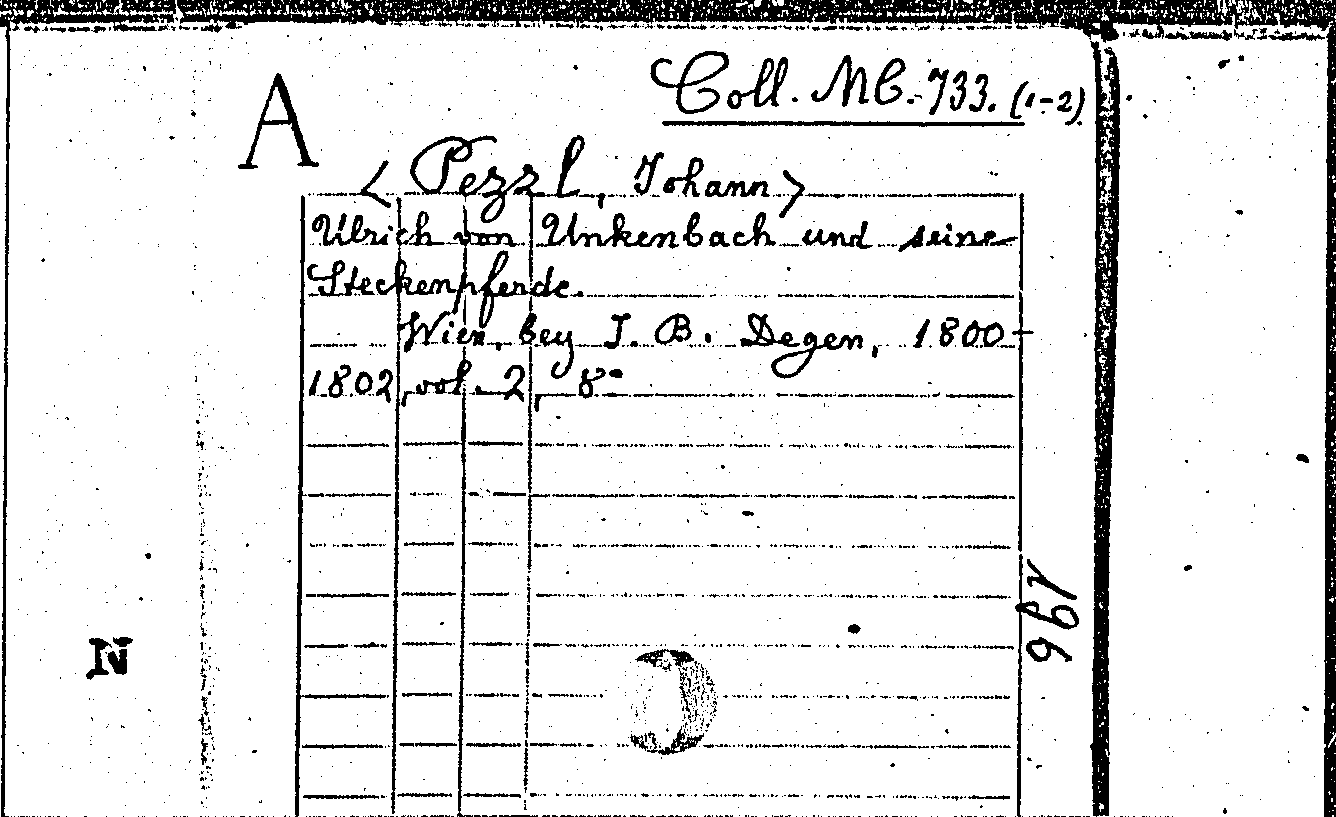 A
Coll. MC. 733. (1-2)
< Pezzl, Johann >
Ulrich von Unkenbach und seine
Steckenpferde.
Wien, bey J. B. Degen, 1800-
1802, vol. 2, 8°
N